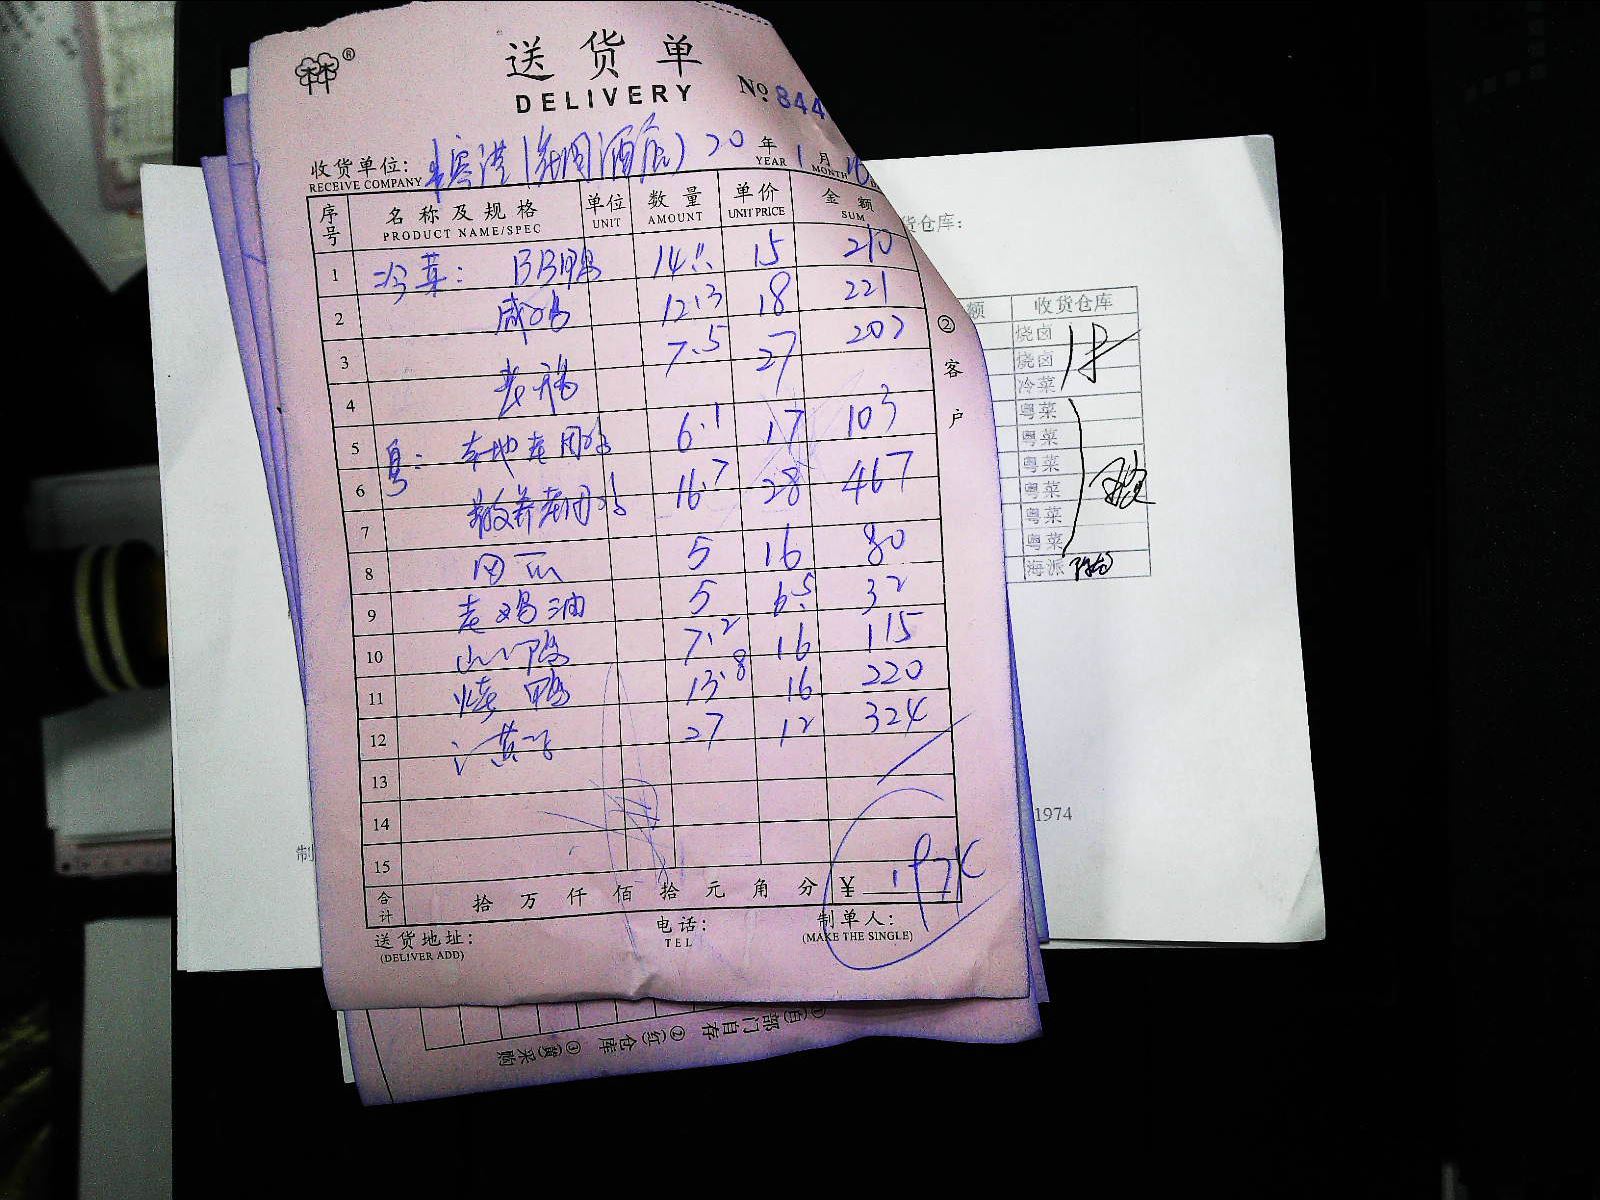 送货单
DELIVERY
No 844
收货单位: 20 年 1 月 16
RECEIVE COMPANY YEAR MONTH
序号 名称及规格 单位 数量 单价 金额
PRODUCT NAME/SPEC UNIT AMOUNT UNIT PRICE SUM
1 冷菜: BB鸭 14 15 210
2 咸鸡 12.3 18 221
3 7.5 27 202
4 老鸽
5 粤: 本地老 6.1 17 103
6 散养老 16.7 28 467
7
8 5 16 80
9 老鸡油 5 6.5 32
10 7.2 16 115
11 烤鸭 13.8 16 220
12 27 12 324
13
14
15
合计 拾 万 仟 佰 拾 元 角 分 ¥ 1974
送货地址: 电话: 制单人:
(DELIVER ADD) TEL (MAKE THE SINGLE)
②客户
货仓库:
额 收货仓库
烧卤
烧卤
冷菜
粤菜
粤菜
粤菜
粤菜
粤菜
粤菜
海派
1974
制
①(白)部门自存 ②(红)仓库 ③(黄)采购